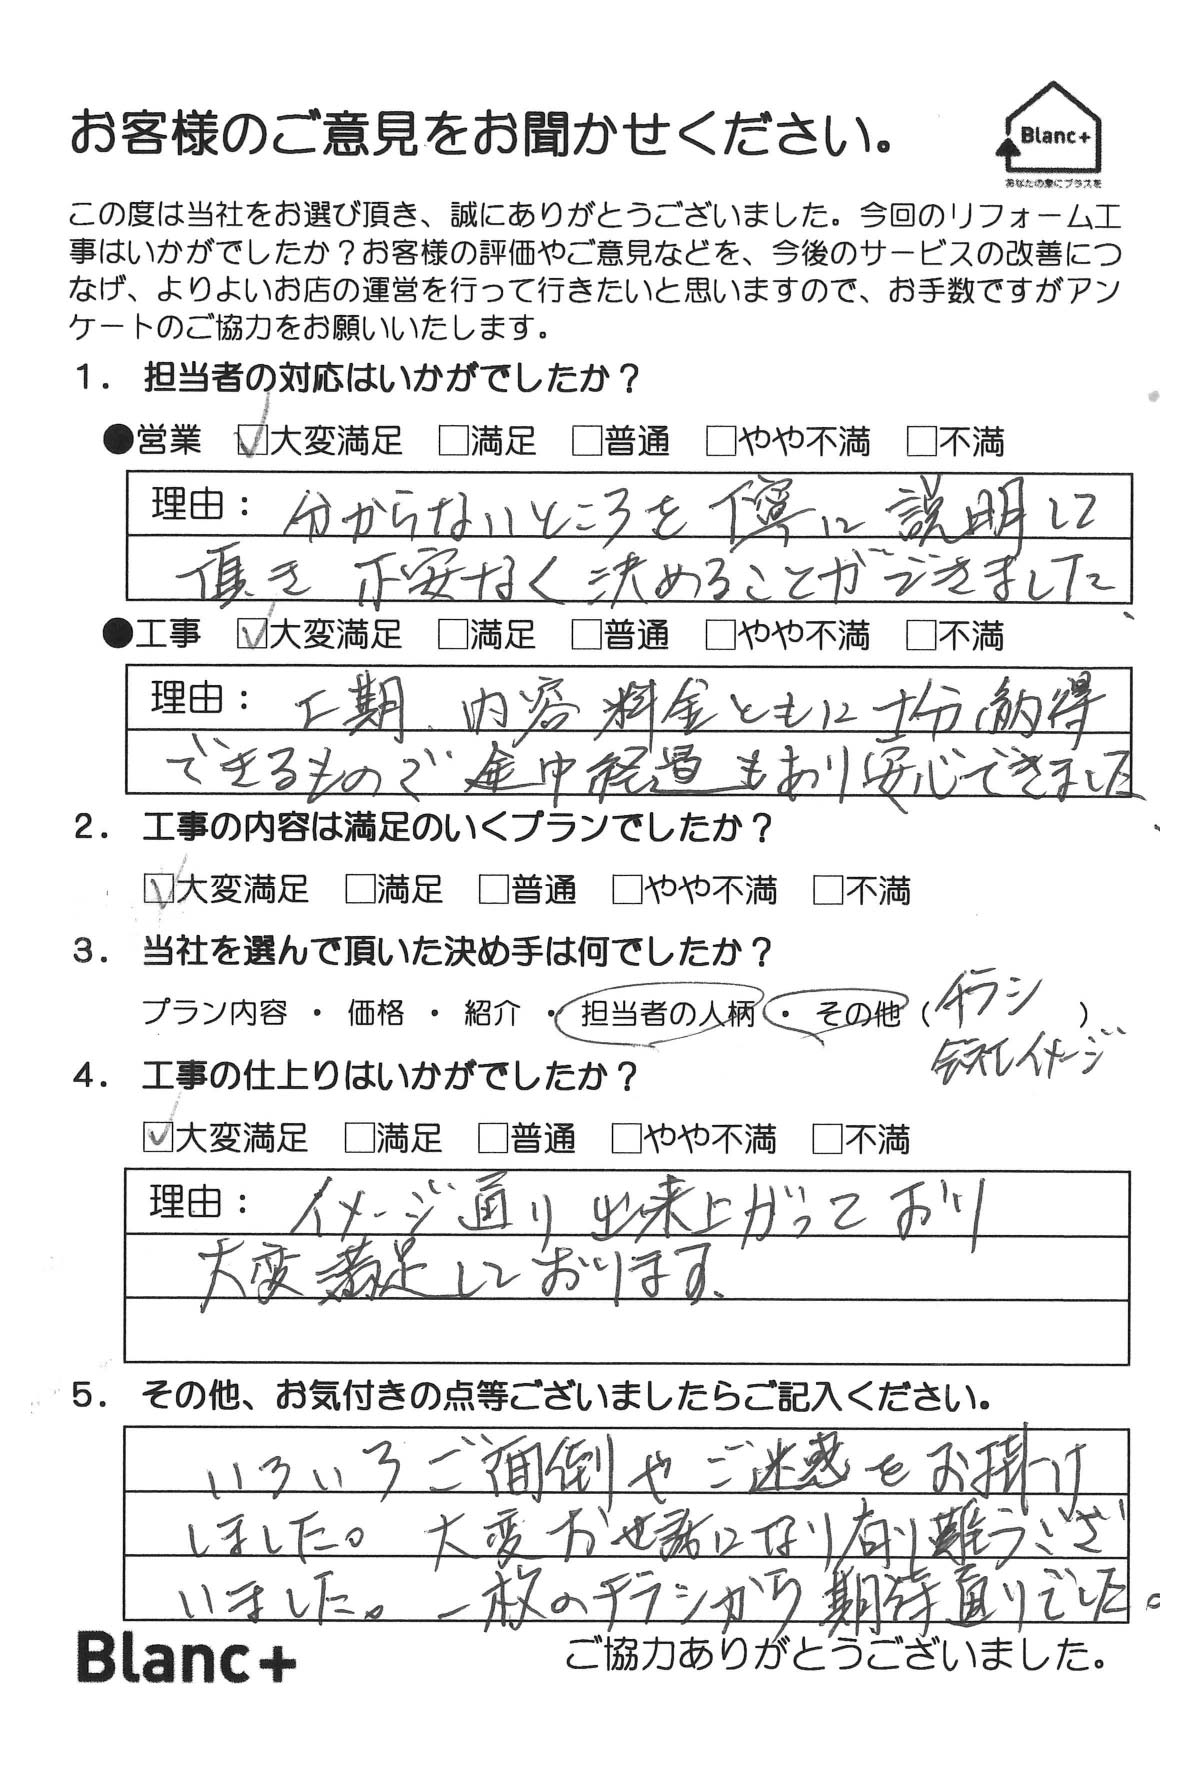 お客様のご意見をお聞かせください。
Blanc+
あなたの家にプラスを
この度は当社をお選び頂き、誠にありがとうございました。今回のリフォーム工
事はいかがでしたか？お客様の評価やご意見などを、今後のサービスの改善につ
なげ、よりよいお店の運営を行って行きたいと思いますので、お手数ですがアン
ケートのご協力をお願いいたします。
１． 担当者の対応はいかがでしたか？
●営業 ☑大変満足 □満足 □普通 □やや不満 □不満
理由： 分からないところを丁寧に説明して
頂き不安なく決めることができました、
●工事 ☑大変満足 □満足 □普通 □やや不満 □不満
理由： 工期、内容料金ともに十分納得
できるもので途中経過もあり安心できました、
２． 工事の内容は満足のいくプランでしたか？
☑大変満足 □満足 □普通 □やや不満 □不満
３． 当社を選んで頂いた決め手は何でしたか？
プラン内容 ・ 価格 ・ 紹介 ・ 担当者の人柄 ・ その他（チラシ ）
会社イメージ
４． 工事の仕上りはいかがでしたか？
☑大変満足 □満足 □普通 □やや不満 □不満
理由： イメージ通り出来上がっており
大変満足しております、
５． その他、お気付きの点等ございましたらご記入ください。
いろいろご面倒やご迷惑をお掛け
しました。大変お世話になり有り難うござ
いました。一枚のチラシから期待通りでした。
Blanc+
ご協力ありがとうございました。